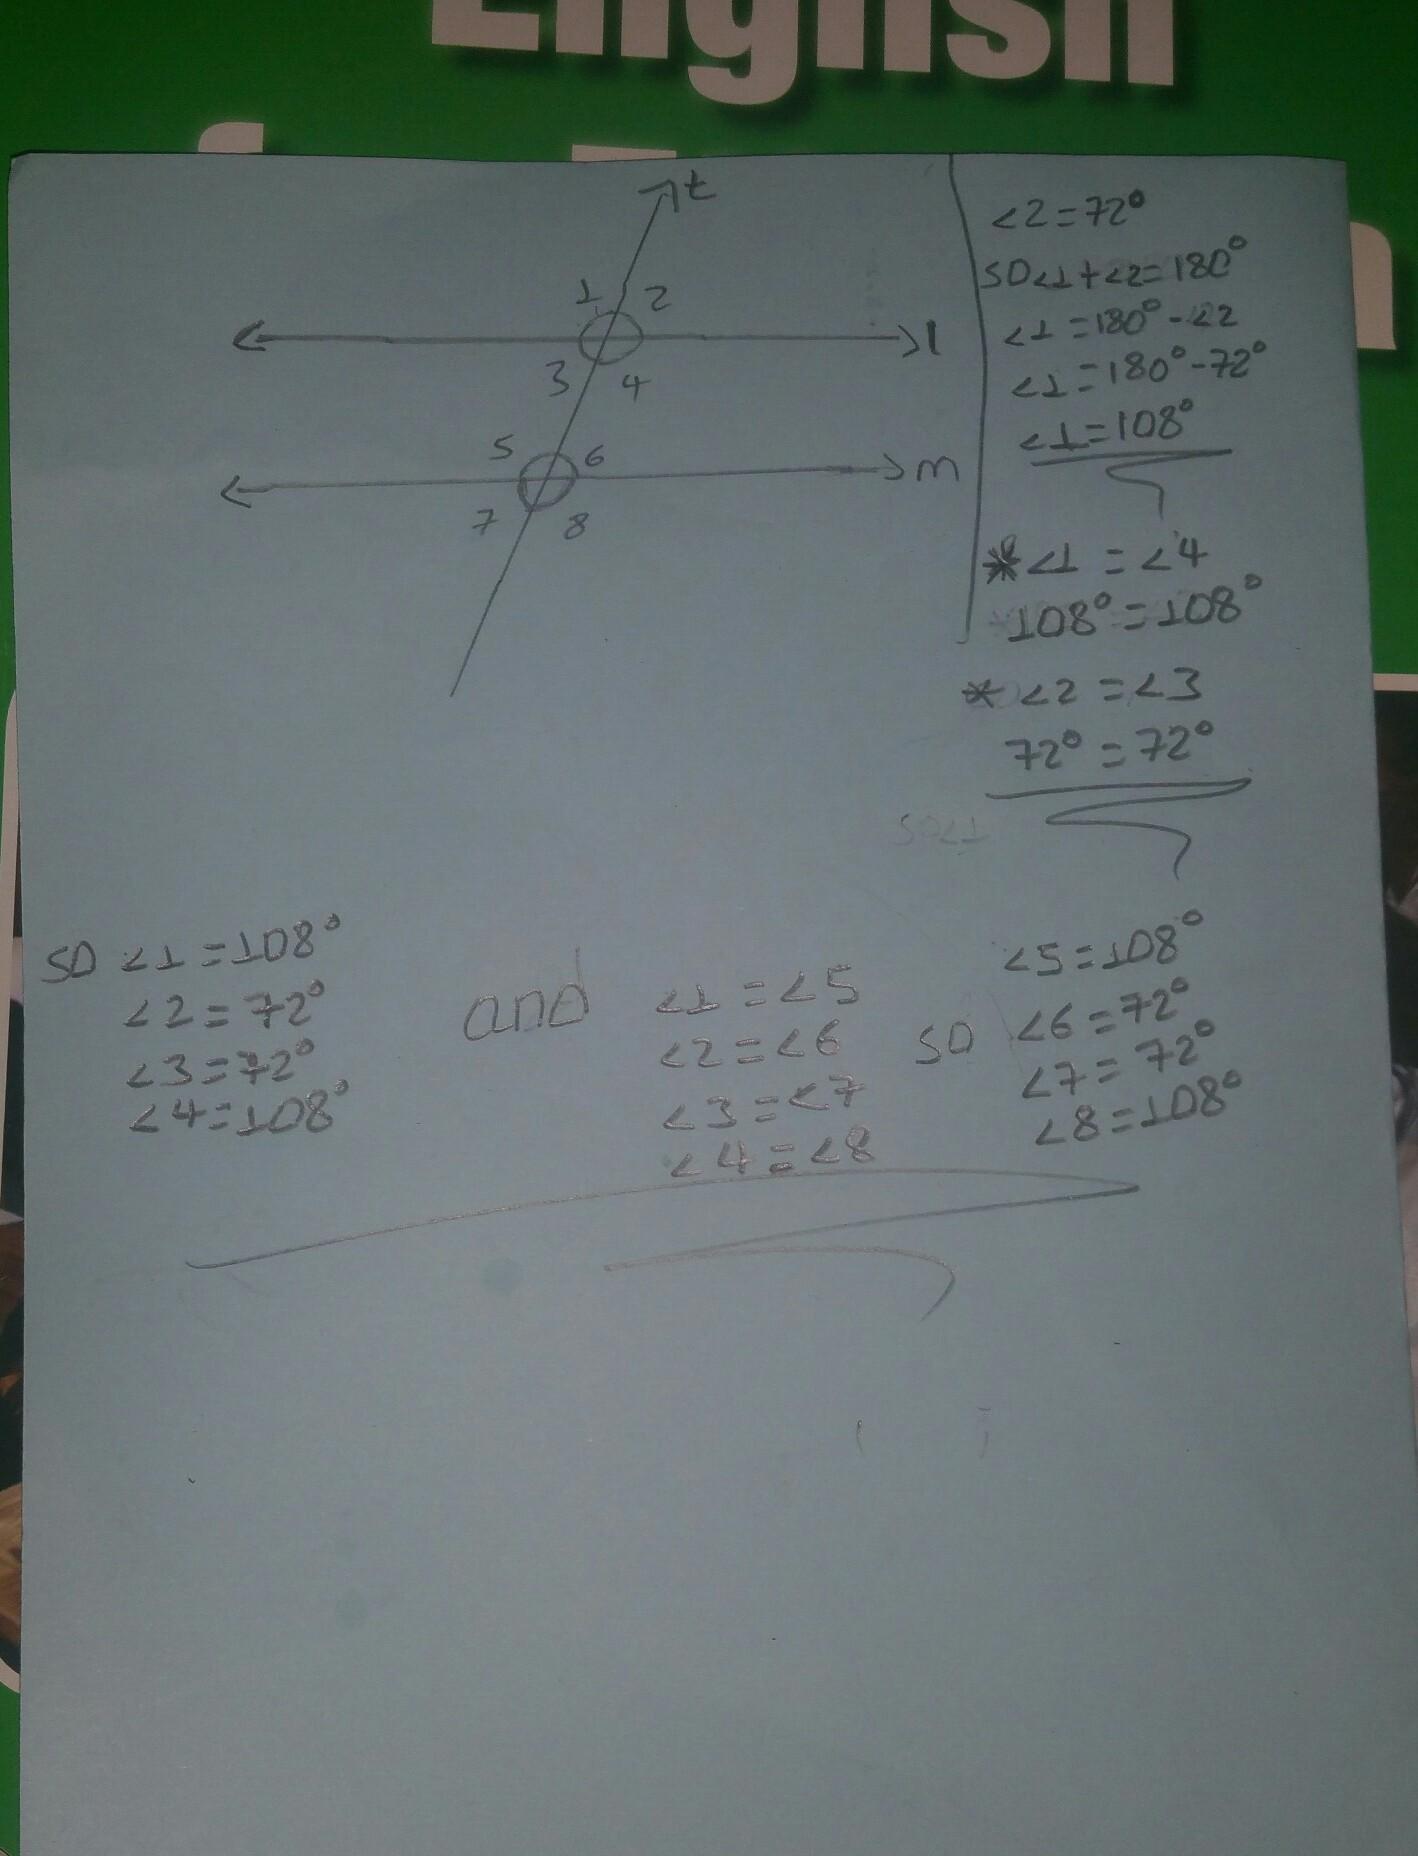 English
t
1 2
l
3 4
5 6
m
7 8
<2=72°
SO<1+<2=180°
<1=180°-<2
<1=180°-72°
<1=108°
*<1=<4
108°=108°
*<2=<3
72°=72°
SO<1
SO <1=108°
<2=72°
<3=72°
<4=108°
and
<1=<5
<2=<6
<3=<7
<4=<8
SO
<5=108°
<6=72°
<7=72°
<8=108°